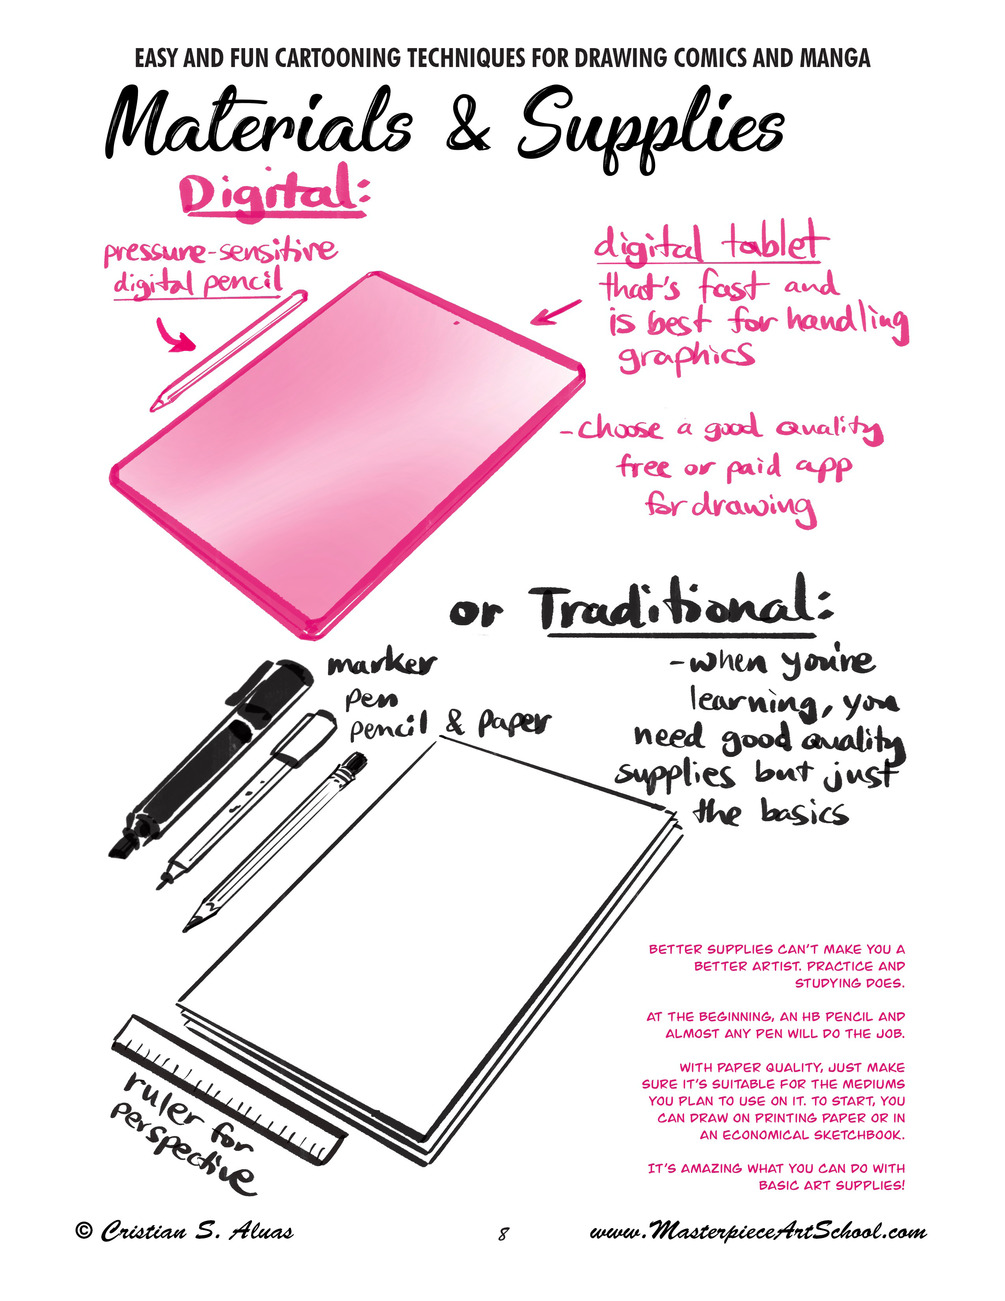 EASY AND FUN CARTOONING TECHNIQUES FOR DRAWING COMICS AND MANGA
Materials & Supplies
Digital:
pressure-sensitive
digital pencil
digital tablet
that's fast and
is best for handling
graphics
- choose a good quality
free or paid app
for drawing
or Traditional:
marker
pen
pencil & paper
- when you're
learning, you
need good quality
supplies but just
the basics
ruler for
perspective
BETTER SUPPLIES CAN'T MAKE YOU A
BETTER ARTIST. PRACTICE AND
STUDYING DOES.
AT THE BEGINNING, AN HB PENCIL AND
ALMOST ANY PEN WILL DO THE JOB.
WITH PAPER QUALITY, JUST MAKE
SURE IT'S SUITABLE FOR THE MEDIUMS
YOU PLAN TO USE ON IT. TO START, YOU
CAN DRAW ON PRINTING PAPER OR IN
AN ECONOMICAL SKETCHBOOK.
IT'S AMAZING WHAT YOU CAN DO WITH
BASIC ART SUPPLIES!
© Cristian S. Aluas
8
www.MasterpieceArtSchool.com